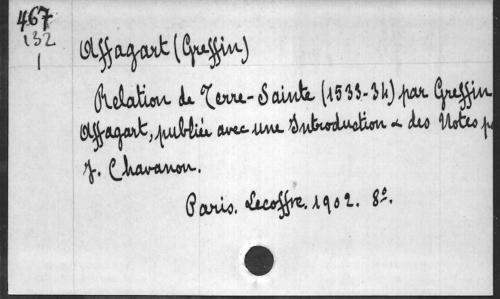 467
132
1
Affagart (Greffin)
Relation de Terre-Sainte (1533-34) par Greffin
Affagart, publiée avec une Introduction & des Notes p
J. Chavanon.
Paris. Lecoffre. 1902. 8º.